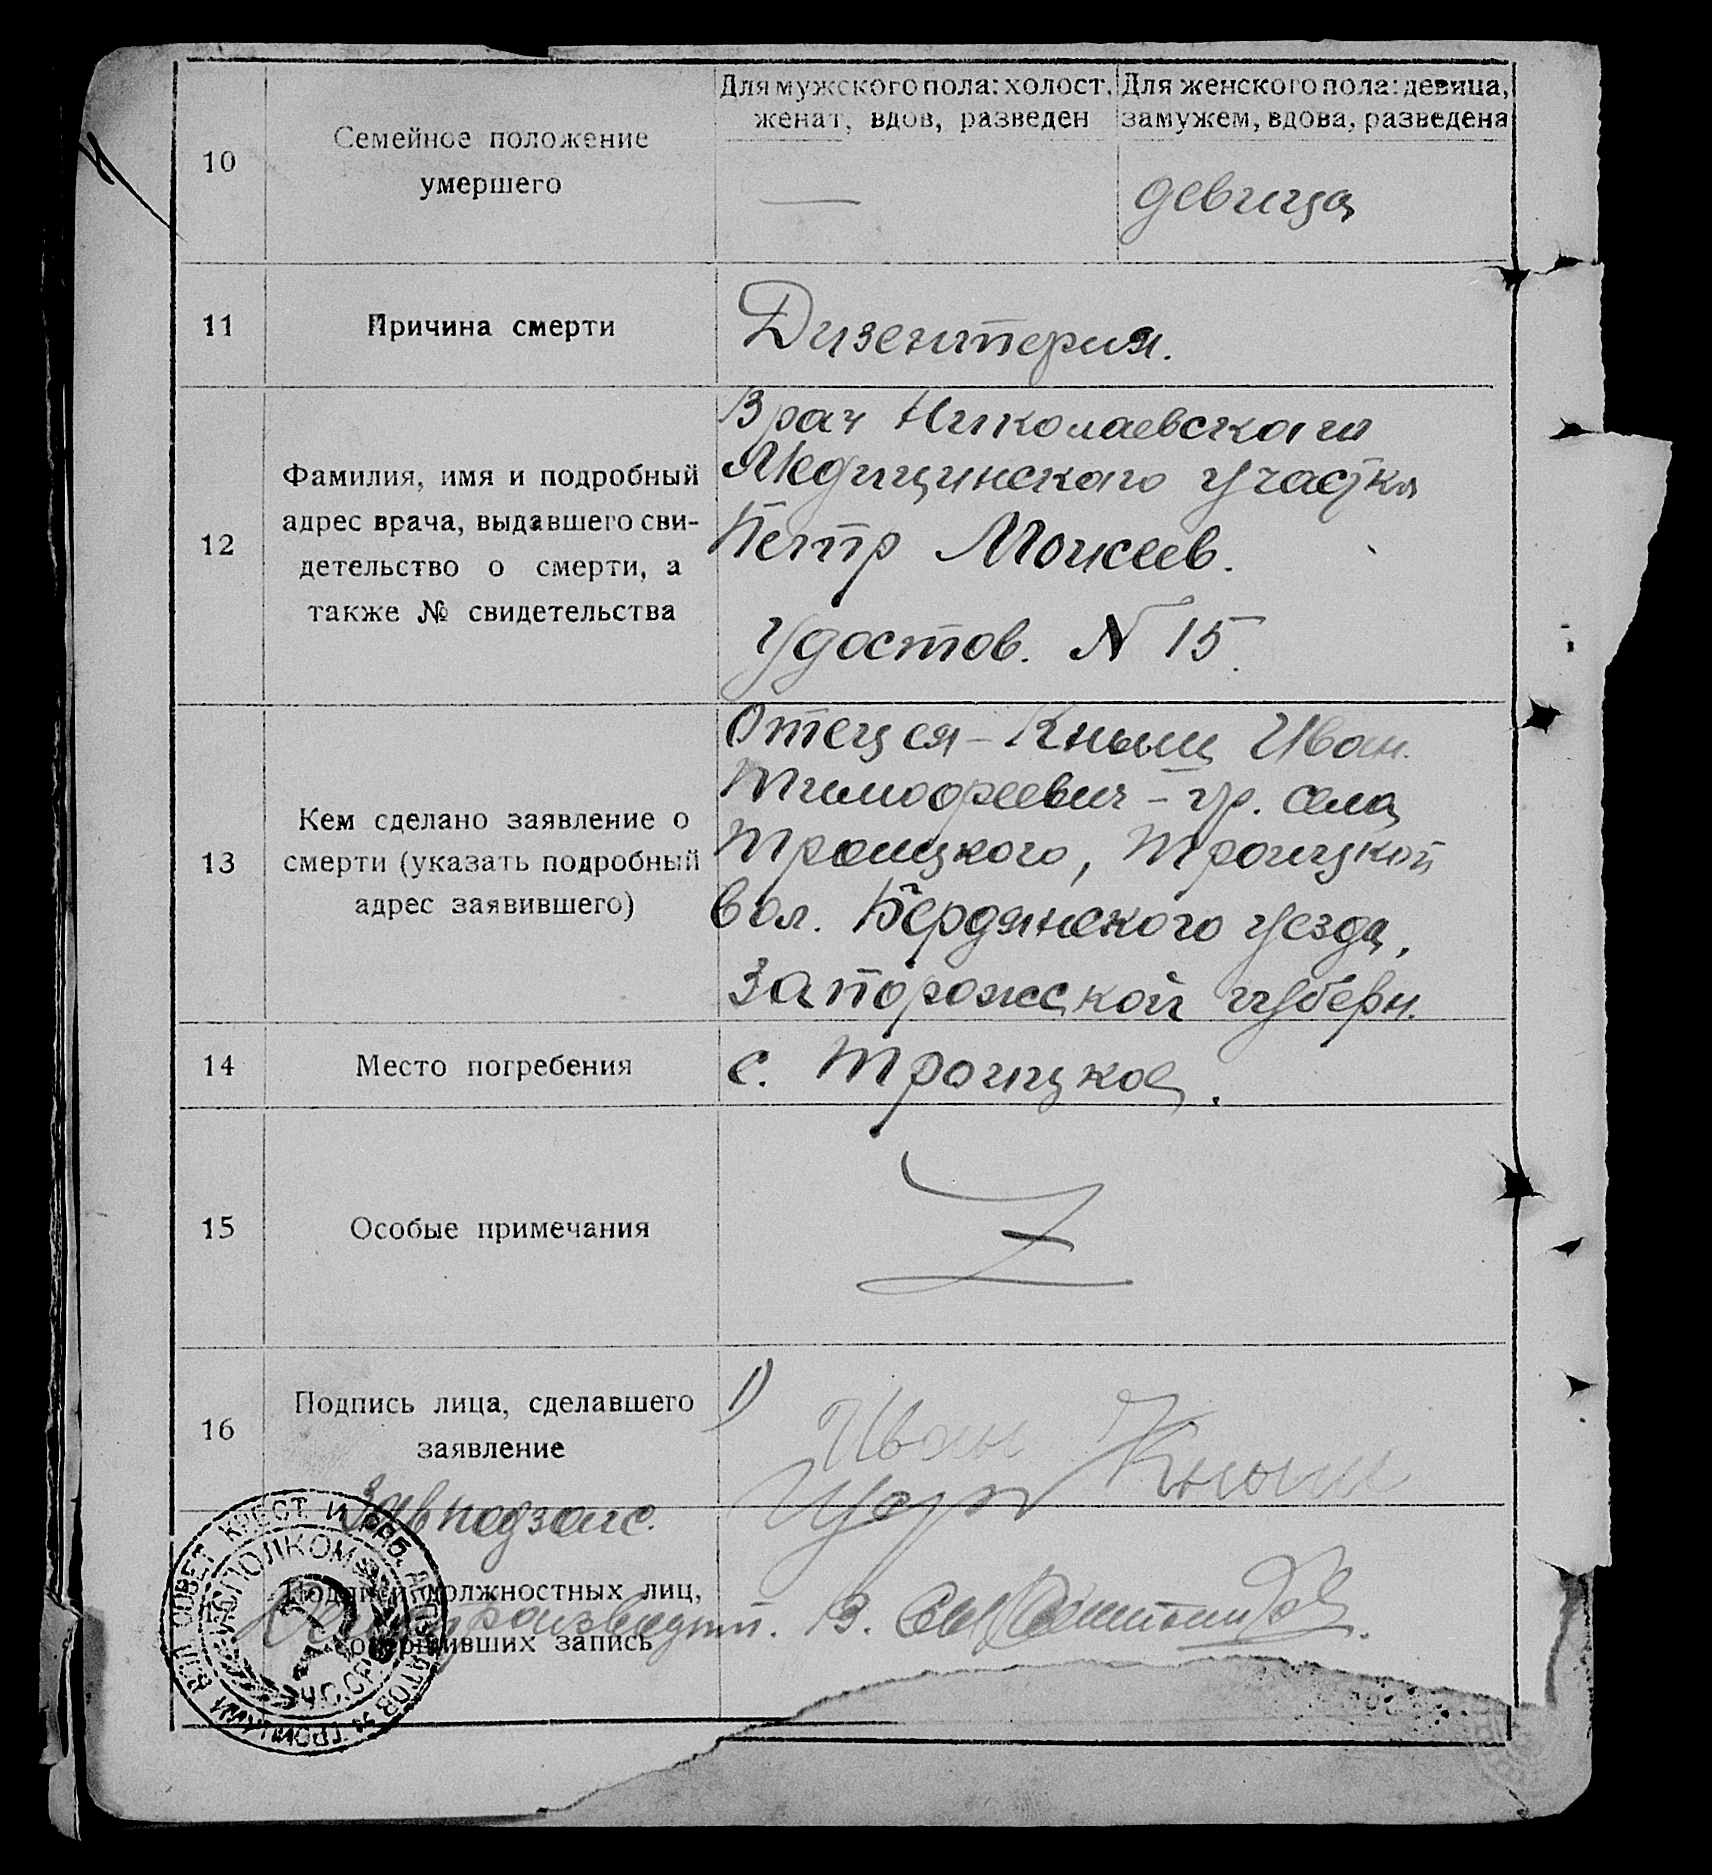 10
Семейное положение
умершего
Для мужского пола: холост,
женат, вдов, разведен
—
Для женского пола: девица,
замужем, вдова, разведена
девица
11
Причина смерти
Дизентерия.
12
Фамилия, имя и подробный
адрес врача, выдавшего сви-
детельство о смерти, а
также № свидетельства
Врач Николаевскаго
Медицинского участка
Петр Моисеев.
Удостов. N 15.
13
Кем сделано заявление о
смерти (указать подробный
адрес заявившего)
Отец ея – Кныш Иван
Тимофеевич – гр. села
Троицкого, Троицкой
вол. Бердянского уезда,
Запорожской губерн.
14
Место погребения
с. Троицкое.
15
Особые примечания
16
Подпись лица, сделавшего
заявление
1)
Иван Кныш
Завподзагс.
Подписи должностных лиц,
совершивших запись
Делопроизводит. В.
ИСПОЛКОМ
У.С.С.Р.
СОВЕТ КРЕСТ. И РАБ. ДЕПУТАТОВ